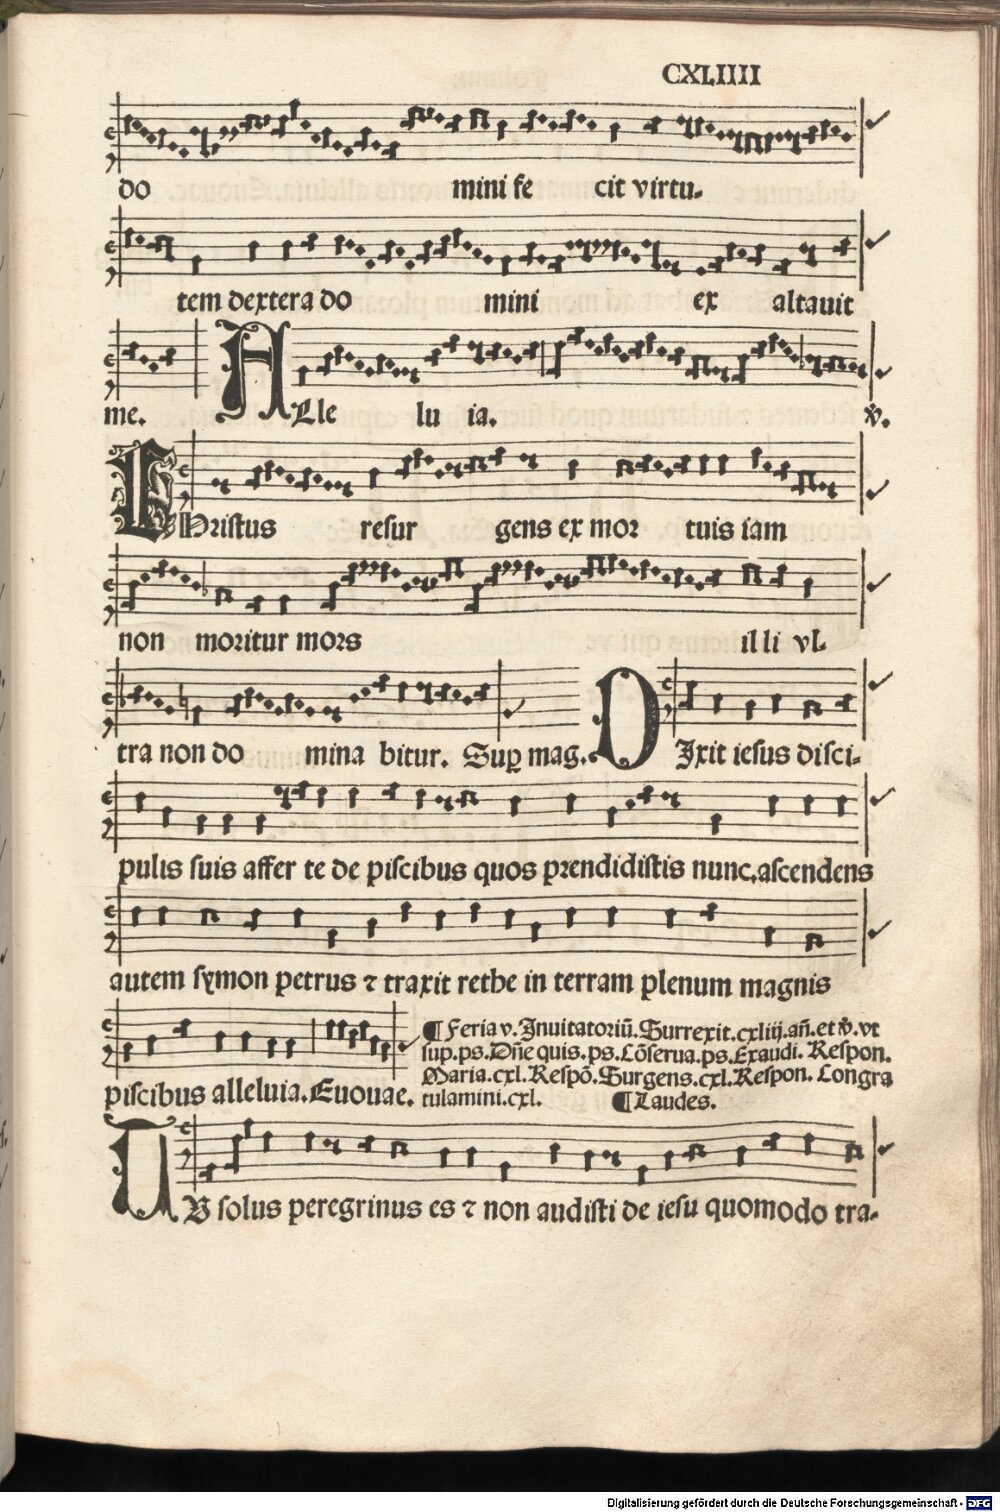 CXLIIII
do mini fe cit virtu-
tem dextera do mini ex altauit
me. ALle lu ia. ꝟ.
CHristus resur gens ex mor tuis iam
non moritur mors il li vl-
tra non do mina bitur. Suꝑ mag. DIxit iesus disci-
pulis suis affer te de piscibus quos prendidistis nunc.ascendens
autem symon petrus ⁊ traxit rethe in terram plenum magnis
piscibus alleluia. Euouae.
¶ Feria v. Inuitatoriū. Surrexit.cxliij.añ.et ꝟ.vt
sup.ps.Dñe quis.ps.Cōserua.ps.Exaudi. Respon.
Maria.cxl.Respō.Surgens.cxl.Respon. Congra
tulamini.cxl. ¶ Laudes.
TV solus peregrinus es ⁊ non audisti de iesu quomodo tra-
Digitalisierung gefördert durch die Deutsche Forschungsgemeinschaft - DFG